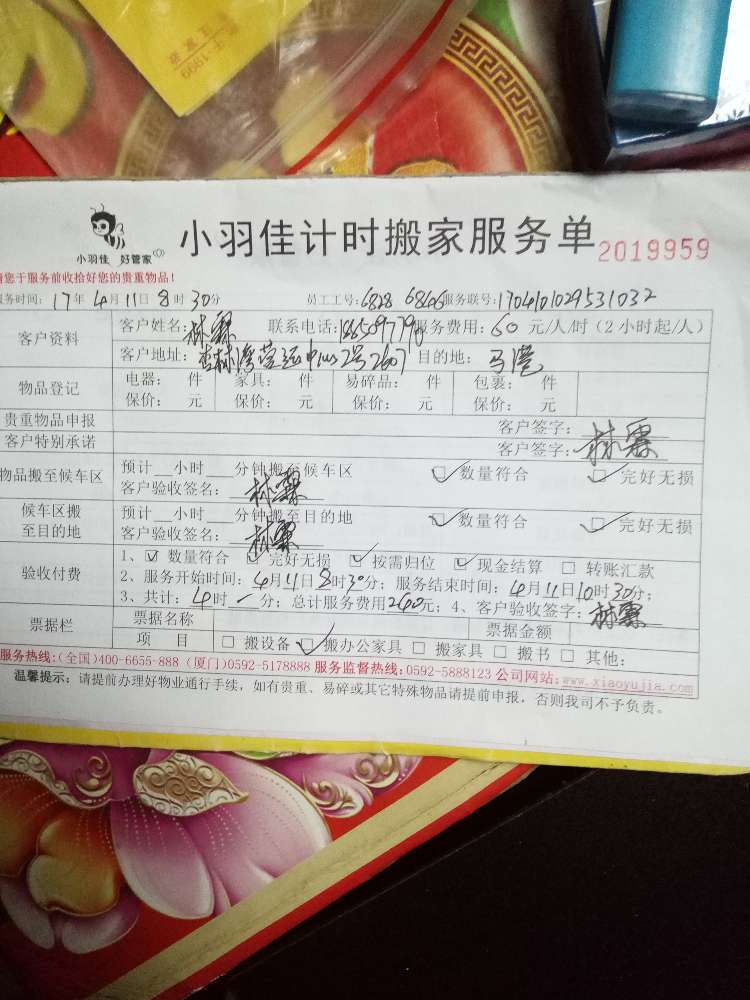 小羽佳 好管家
小羽佳计时搬家服务单 2019959
请您于服务前收拾好您的贵重物品!
服务时间: 17年4月11日8时30分 员工工号: 6828 6866 服务联号: 1704101029531032
客户资料 客户姓名: 林霖 联系电话: 服务费用: 60 元/人/时 (2小时起/人)
客户地址: 杏林湾营运中心2号2607 目的地: 马巷
物品登记 电器: 件 家具: 件 易碎品: 件 包裹: 件
保价: 元 保价: 元 保价: 元 保价: 元
贵重物品申报 客户签字:
客户特别承诺 客户签字: 林霖
物品搬至候车区 预计 小时 分钟搬至候车区 数量符合 完好无损
客户验收签名: 林霖
候车区搬至目的地 预计 小时 分钟搬至目的地 数量符合 完好无损
客户验收签名: 林霖
验收付费 1、 数量符合 完好无损 按需归位 现金结算 转账汇款
2、服务开始时间: 4月11日8时30分; 服务结束时间: 4月11日10时30分;
3、共计: 4时-分; 总计服务费用240元; 4、客户验收签字: 林霖
票据栏 票据名称 票据金额
项目 搬设备 搬办公家具 搬家具 搬书 其他:
服务热线: (全国)400-6655-888 (厦门)0592-5178888 服务监督热线: 0592-5888123 公司网站: www.xiaoyujia.com
温馨提示: 请提前办理好物业通行手续, 如有贵重、易碎或其它特殊物品请提前申报, 否则我司不予负责。